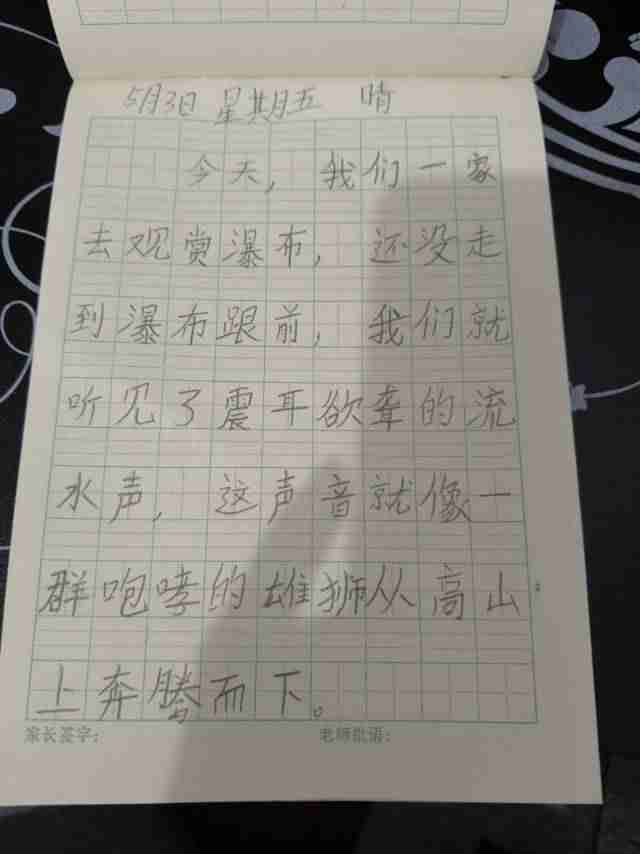 5月3日 星期五 晴
今天，我们一家
去观赏瀑布，还没走
到瀑布跟前，我们就
听见了震耳欲聋的流
水声，这声音就像一
群咆哮的雄狮从高山
上奔腾而下。
家长签字： 老师批语：